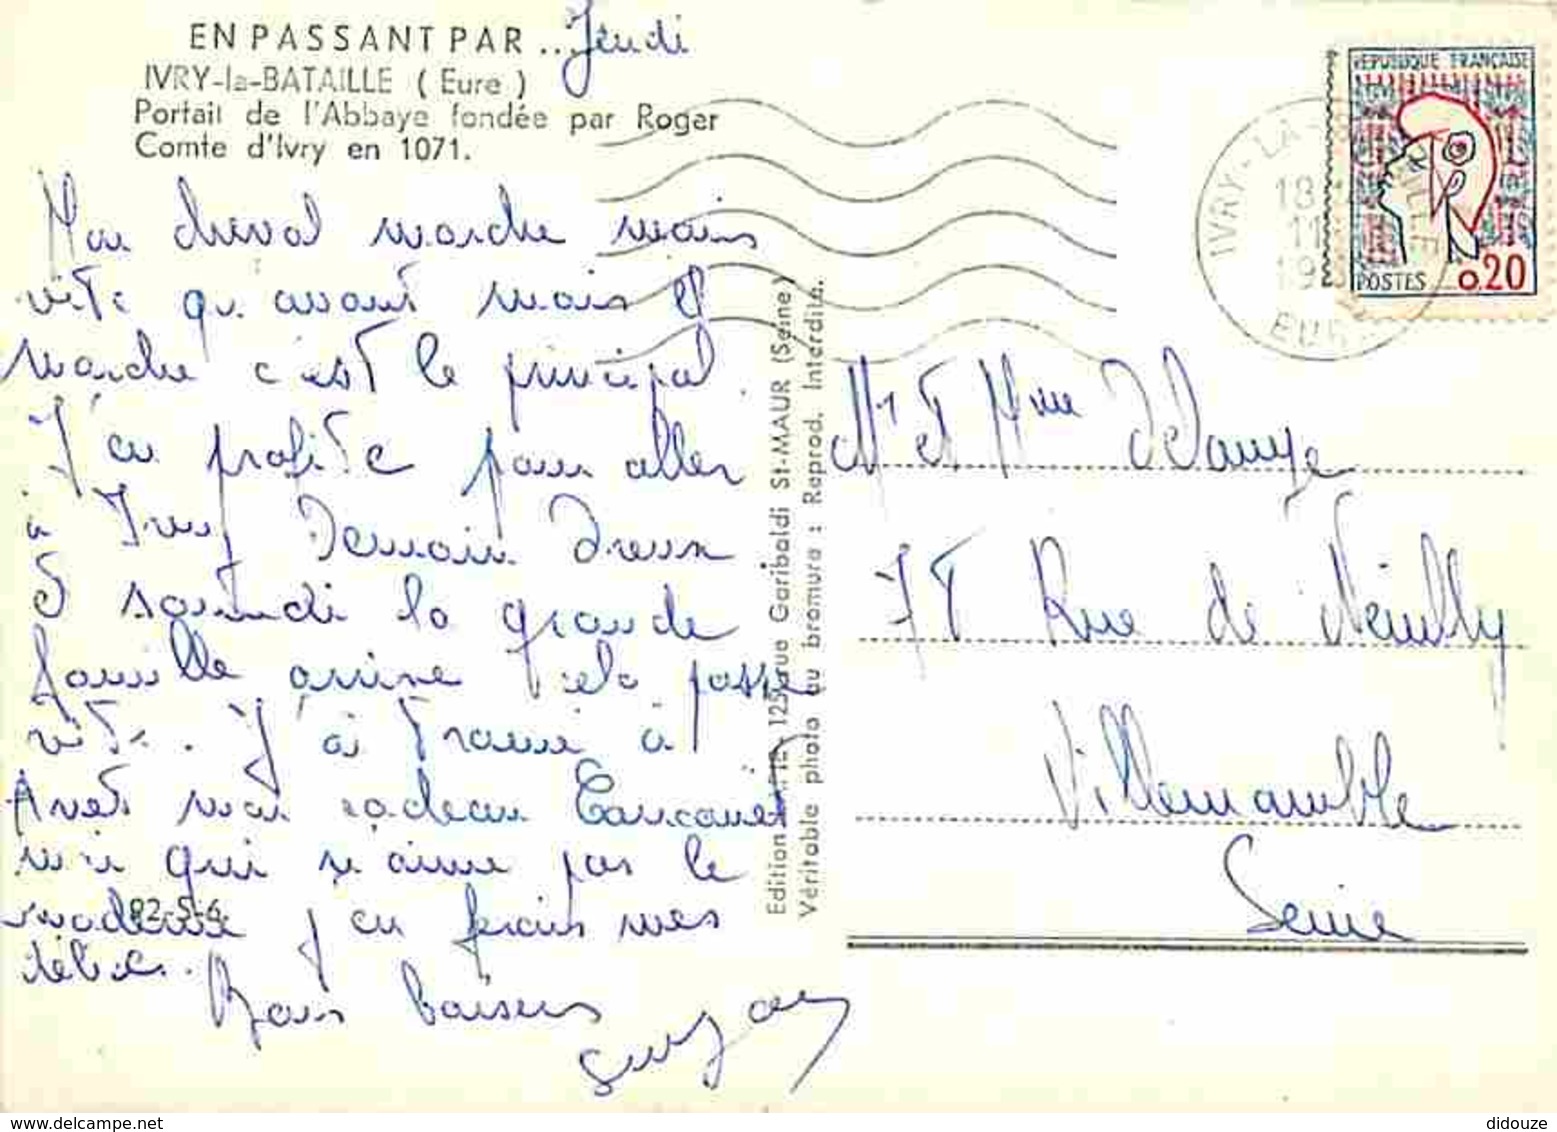 EN PASSANT PAR ... Jeudi
IVRY-la-BATAILLE ( Eure )
Portail de l'Abbaye fondée par Roger
Comte d'Ivry en 1071.
Mon cheval marche moins
vite qu'avant mais il
marche c'est le principal.
J'en profite pour aller
à Ivry Demain Dreux
et samedi la grande
famille arrive cela passe
vite. J'ai trouvé à
Anet mon cadeau
moi qui n'aime pas le
moderne j'en ferais mes
délices.
Bons baisers
82-5-6
Edition 125, rue Garibaldi St-MAUR (Seine)
Véritable photo au bromure : Reprod. Interdite.
REPUBLIQUE FRANÇAISE
POSTES 0.20
IVRY-LA-
18
11
19
EUR
Mr et Mme Delange
7T Rue de Neuilly
Villemomble
Seine
didouze